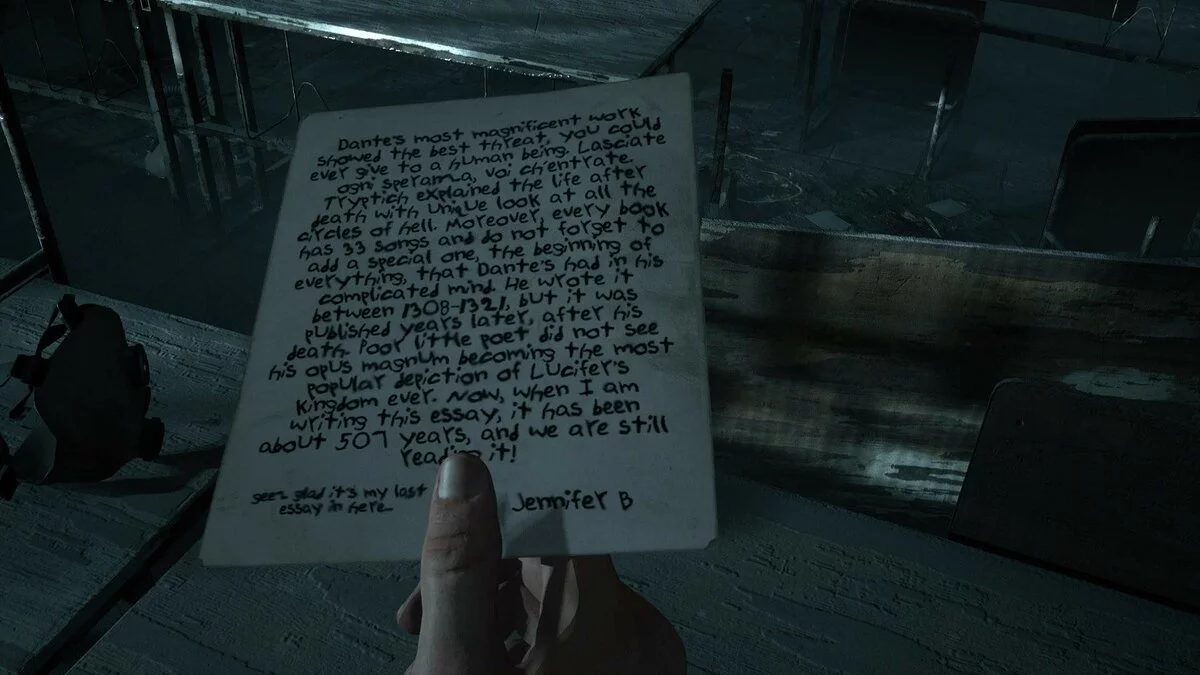 Dante's most magnificent work
showed the best threat, you could
ever give to a human being. Lasciate
ogni speranza, voi ch'entrate.
Tryptich explained the life after
death with unique look at all the
circles of hell. Moreover, every book
has 33 songs and do not forget to
add a special one, the beginning of
everything, that Dante's had in his
complicated mind. He wrote it
between 1308-1321, but it was
published years later, after his
death. Poor little poet, did not see
his opus magnum becoming the most
popular depiction of Lucifer's
Kingdom ever. Now, when I am
writing this essay, it has been
about 507 years, and we are still
reading it!
glad it's my last
essay in here_
Jennifer B